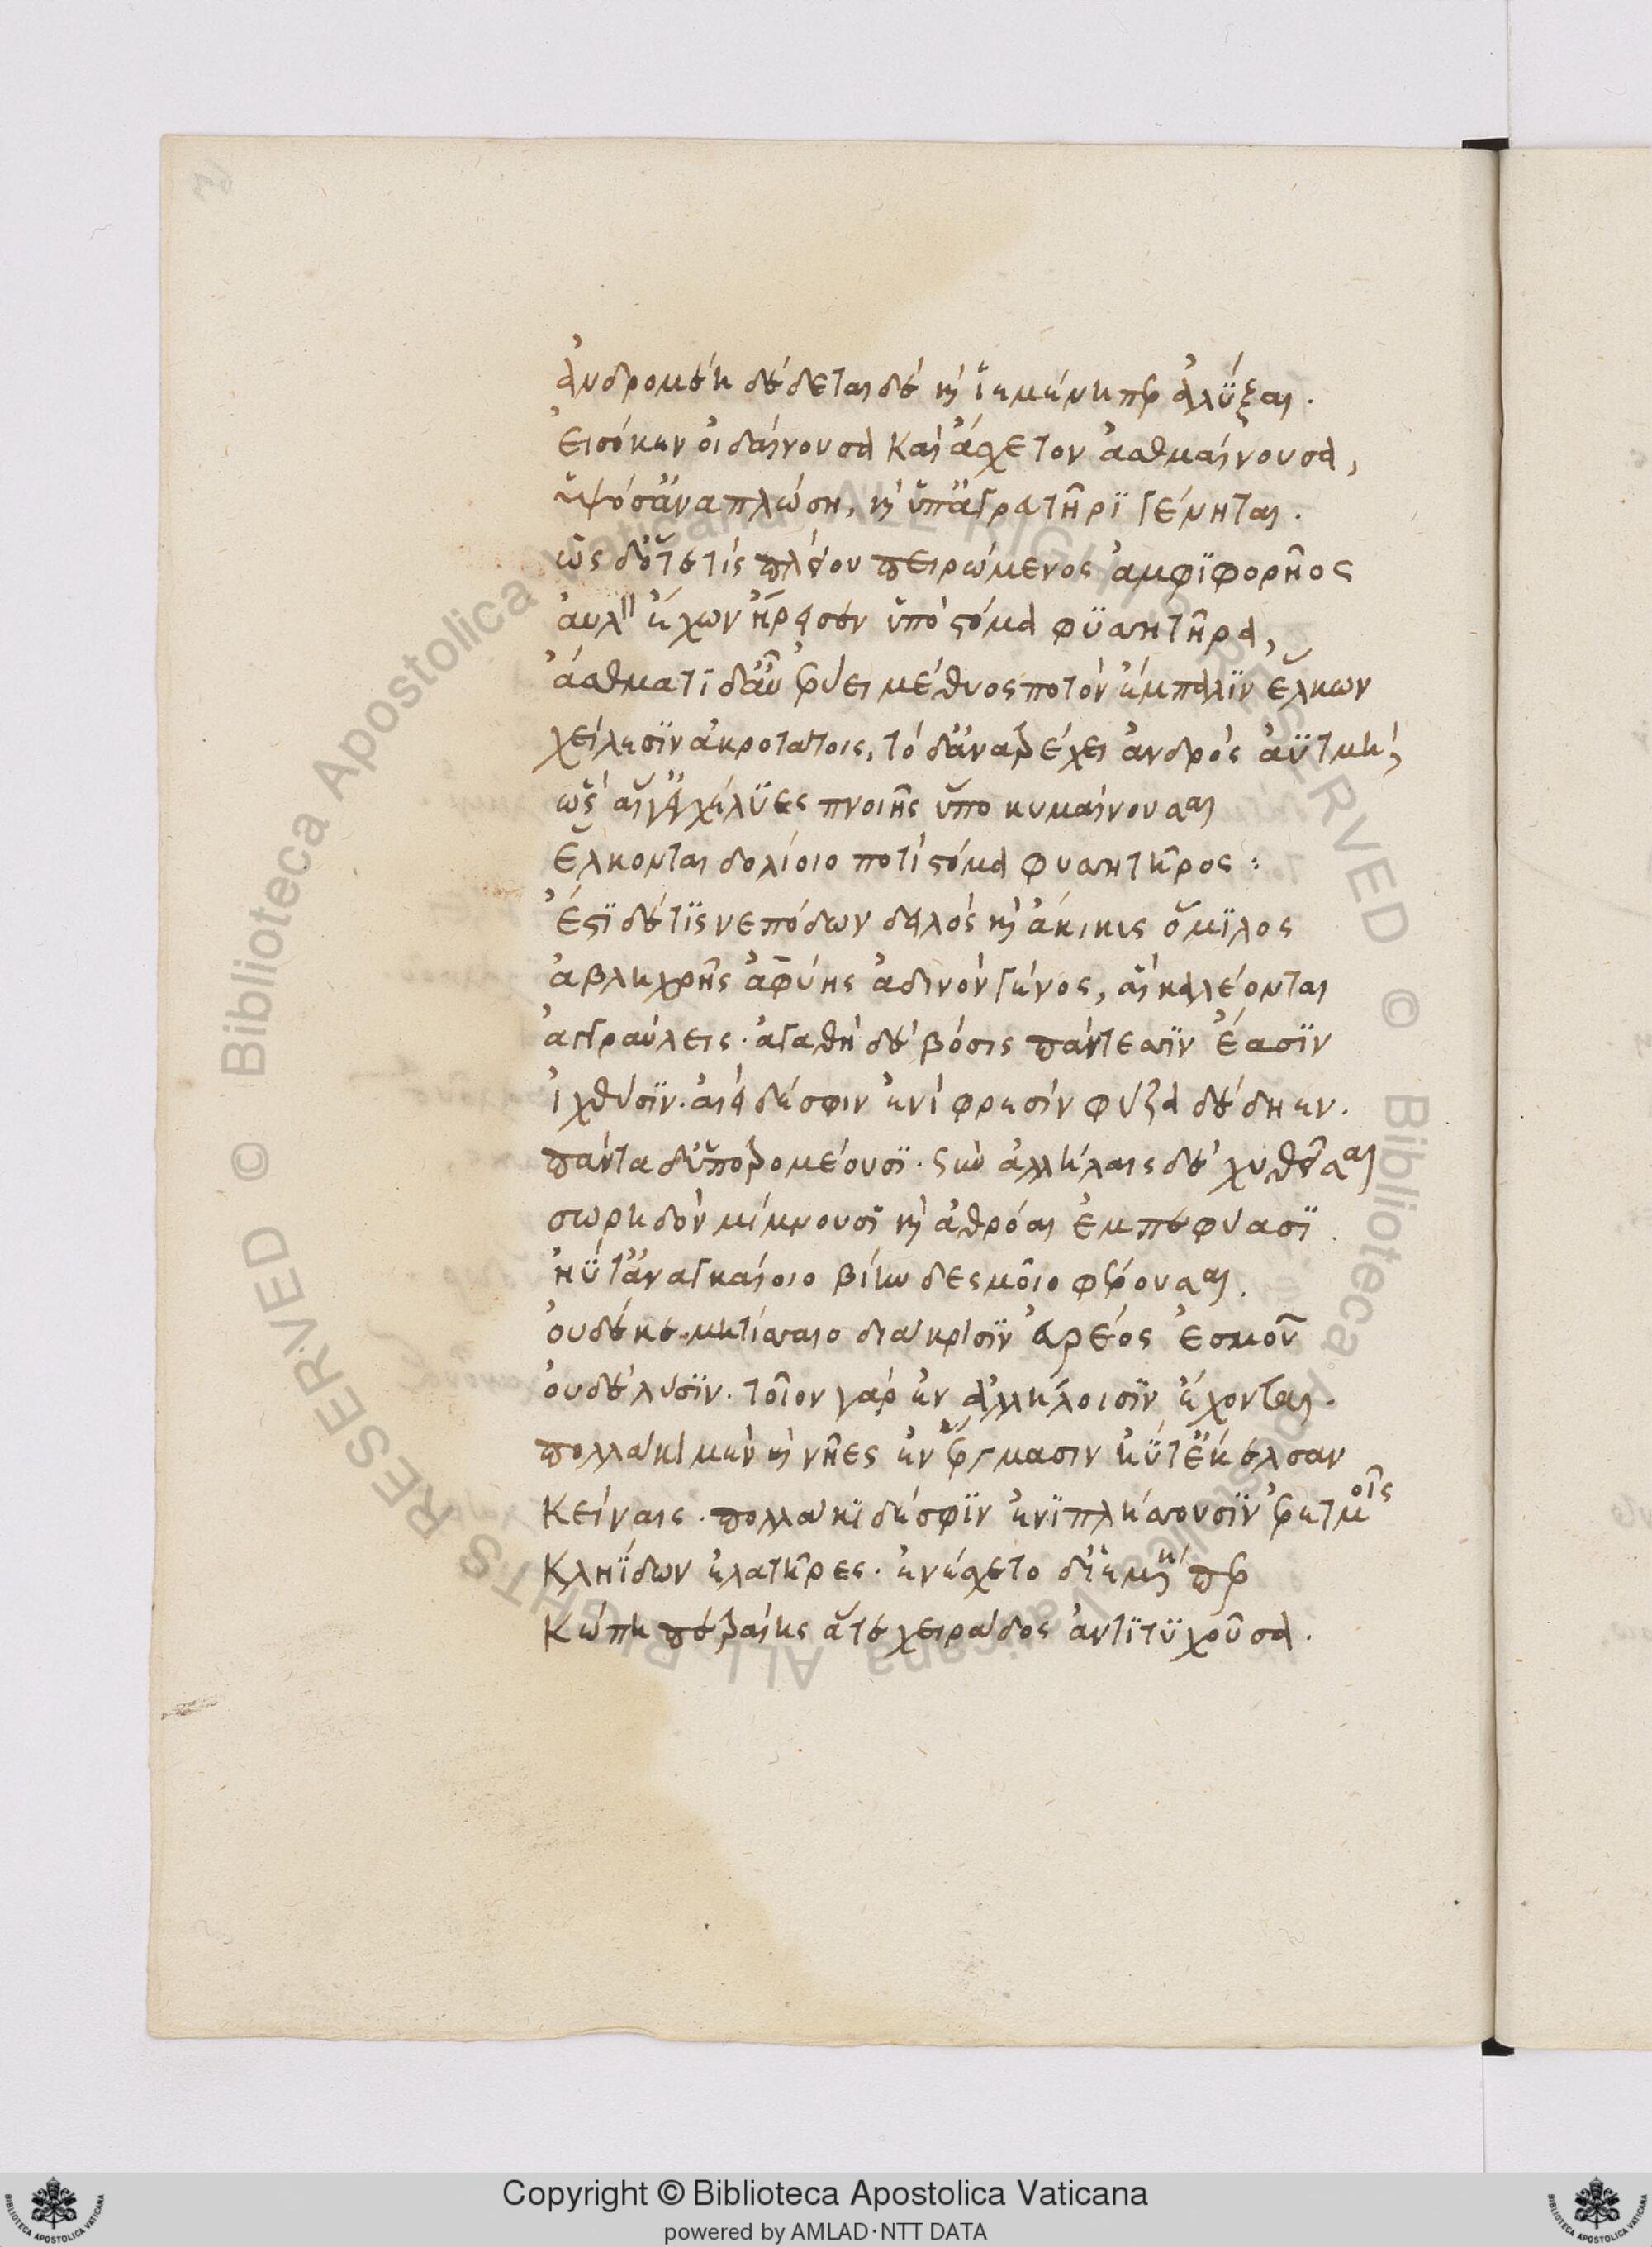 ἀνδρομέη δέδεται δὲ καὶ ἱεμένη περ ἀλύξαι.
εἰσόκεν οἰδαίνουσα καὶ ἄσχετον ἀσθμαίνουσα,
ὑψόσ' ἀναπλώσῃ, καὶ ὑπ' ἀγρατῆρι γένηται.
ὡς δ' ὅτε τίς πλείου πειρώμενος ἀμφιφορῆος
αὐλὸν ἔχων ἤρεισεν ὑπὸ στόμα φυσητῆρα,
ἄσθματι δ' αὖ ἐρύει μέθυος ποτὸν ἔμπαλιν ἕλκων
χείλεσιν ἀκροτάτοις, τὸ δ' ἀνατρέχει ἀνδρὸς ἀϋτμῇ,
ὣς αἵγ' ἐγχέλυες πνοιῆς ὕπο κυμαίνουσαι
ἕλκονται δολίοιο ποτὶ στόμα φυσητῆρος:
Ἔστι δέ τις νεπόδων δειλὸς καὶ ἄκικις ὅμιλος
ἀβληχρῆς ἀφύης ἀδινὸν γένος, αἳ καλέονται
ἐγγραύλεις. ἀγαθὴ δὲ βόσις πάντεσσιν ἔασιν
ἰχθύσιν. αἰεὶ δέ σφιν ἐνὶ φρεσὶν φύζα δέδηεν.
πάντα δ' ὑποτρομέουσι. σὺν ἀλλήλαις δὲ χυθεῖσαι
σωρηδὸν μίμνουσι καὶ ἀθρόαι ἐμπεφύασι
ἠΰτ' ἀναγκαίοιο βίην δεσμοῖο φέρουσαι.
οὐδέ κε μητίσσαιο διάκρισιν εὐρέος ἑσμοῦ
οὐδὲ λύσιν. τοῖον γὰρ ἐν ἀλλήλοισιν ἔχονται.
πολλάκι μὲν καὶ νῆες ἐν ἕρμασιν ἠΰτ' ἔκελσαν
κείναις. πολλάκι δέ σφιν ἐνιπλήσσουσιν ἐρετμοῖς
κληΐδων ἐλατῆρες. ἐνέσχετο δ' ἱεμένη περ
κώπη πέτραίης ἅτε χειράδος ἀντιτυχοῦσα.
Copyright © Biblioteca Apostolica Vaticana
powered by AMLAD·NTT DATA